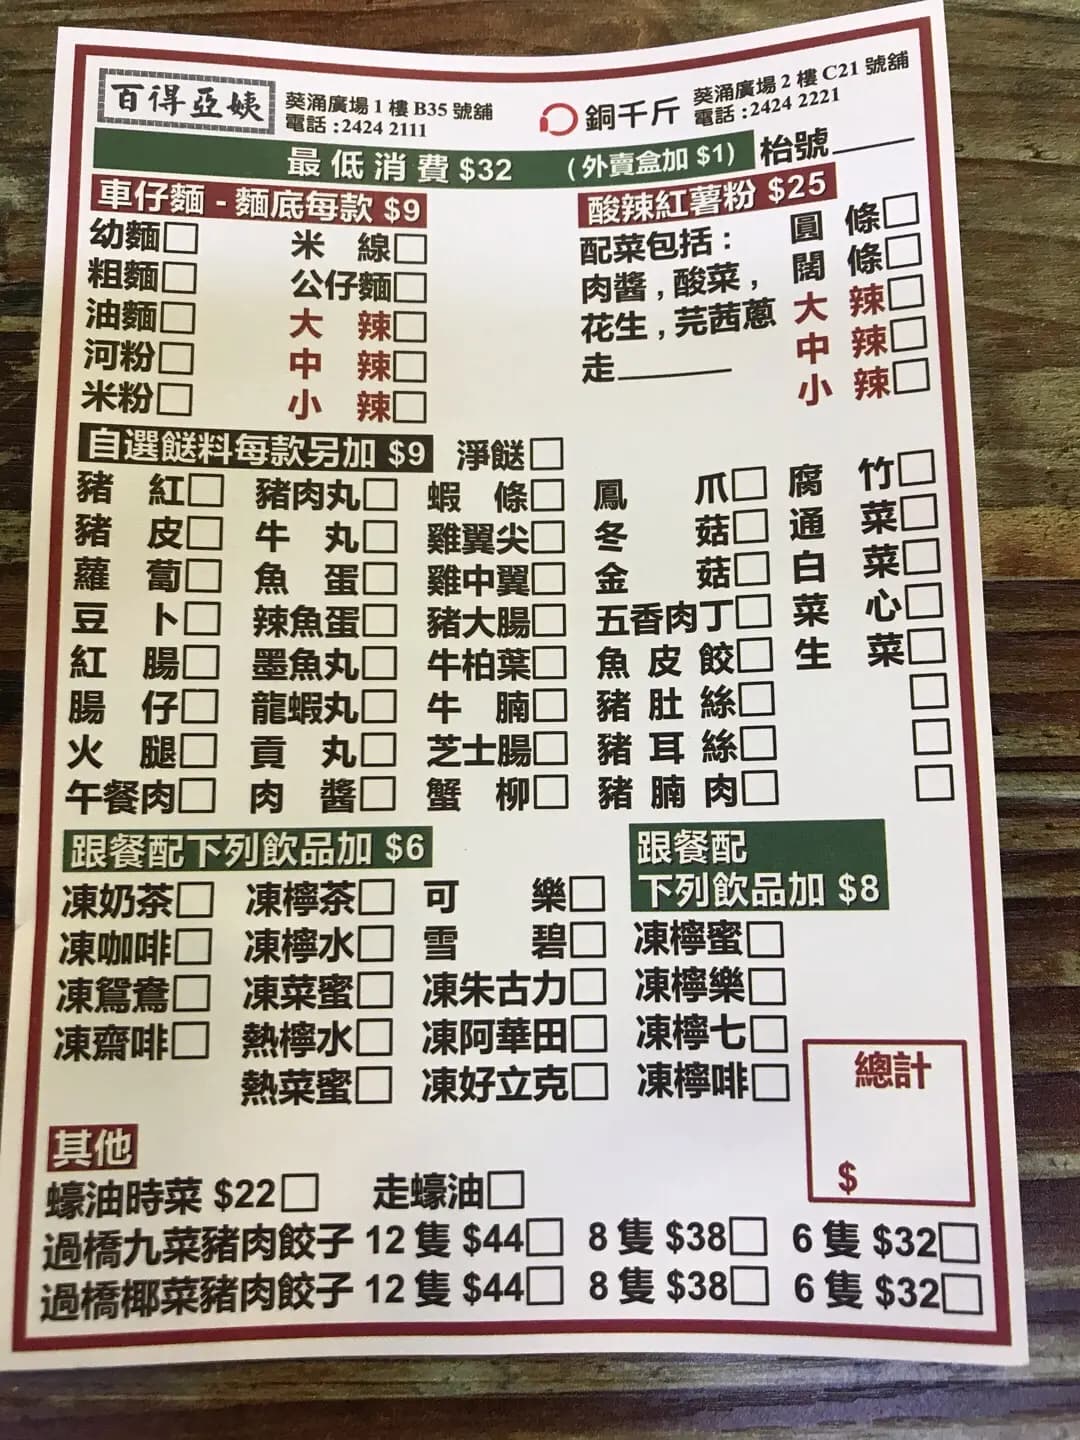 百得亞姨 葵涌廣場1樓 B35 號舖
電話:2424 2111
銅千斤 葵涌廣場2樓 C21 號舖
電話:2424 2221
最低消費 $32 (外賣盒加 $1) 枱號
車仔麵 - 麵底每款 $9
幼麵 米線
粗麵 公仔麵
油麵 大辣
河粉 中辣
米粉 小辣
酸辣紅薯粉 $25
配菜包括: 圓條
肉醬,酸菜, 闊條
花生,芫茜蔥 大辣
走 中辣
小辣
自選餸料每款另加 $9 淨餸
豬紅 豬肉丸 蝦條 鳳爪 腐竹
豬皮 牛丸 雞翼尖 冬菇 通菜
蘿蔔 魚蛋 雞中翼 金菇 白菜
豆卜 辣魚蛋 豬大腸 五香肉丁 菜心
紅腸 墨魚丸 牛柏葉 魚皮餃 生菜
腸仔 龍蝦丸 牛腩 豬肚絲
火腿 貢丸 芝士腸 豬耳絲
午餐肉 肉醬 蟹柳 豬腩肉
跟餐配下列飲品加 $6
凍奶茶 凍檸茶 可樂
凍咖啡 凍檸水 雪碧
凍鴛鴦 凍菜蜜 凍朱古力
凍齋啡 熱檸水 凍阿華田
熱菜蜜 凍好立克
跟餐配
下列飲品加 $8
凍檸蜜
凍檸樂
凍檸七
凍檸啡
總計
$
其他
蠔油時菜 $22 走蠔油
過橋九菜豬肉餃子 12 隻 $44 8 隻 $38 6 隻 $32
過橋椰菜豬肉餃子 12 隻 $44 8 隻 $38 6 隻 $32